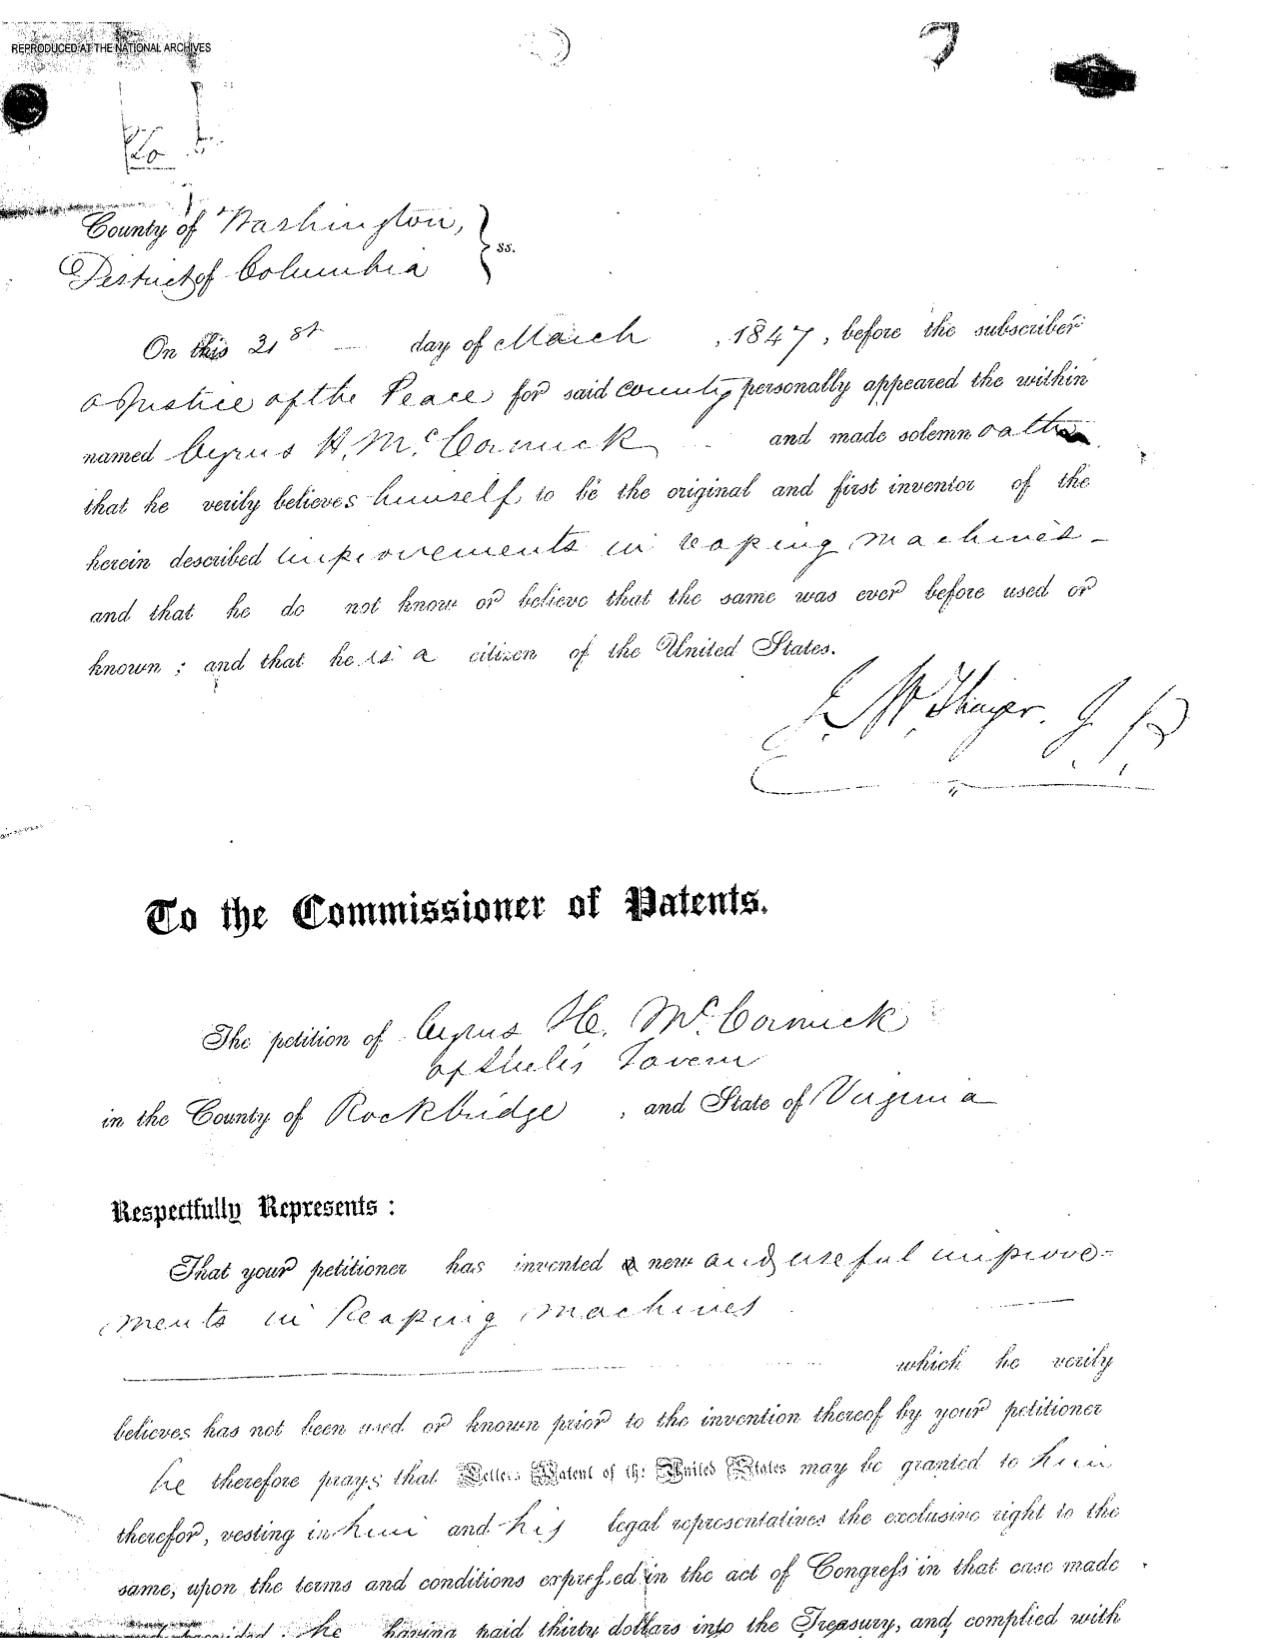 REPRODUCED AT THE NATIONAL ARCHIVES
County of Washington,
District of Columbia } ss.
On this 31st day of March, 1847, before the subscriber
a Justice of the Peace for said county personally appeared the within
named Cyrus H. McCormick and made solemn oath
that he verily believes himself to be the original and first inventor of the
herein described improvements in reaping machines -
and that he do not know or believe that the same was ever before used or
known; and that he is a citizen of the United States.
J. W. Thayer. J. P.
To the Commissioner of Patents.
The petition of Cyrus H. McCormick
of Steeles Tavern
in the County of Rockbridge, and State of Virginia
Respectfully Represents:
That your petitioner has invented a new and useful improve-
ments in Reaping machines
which he verily
believes has not been used or known prior to the invention thereof by your petitioner
he therefore prays that Letters Patent of the United States may be granted to him
therefor, vesting in him and his legal representatives the exclusive right to the
same, upon the terms and conditions expressed in the act of Congress in that case made
and provided. he having paid thirty dollars into the Treasury, and complied with